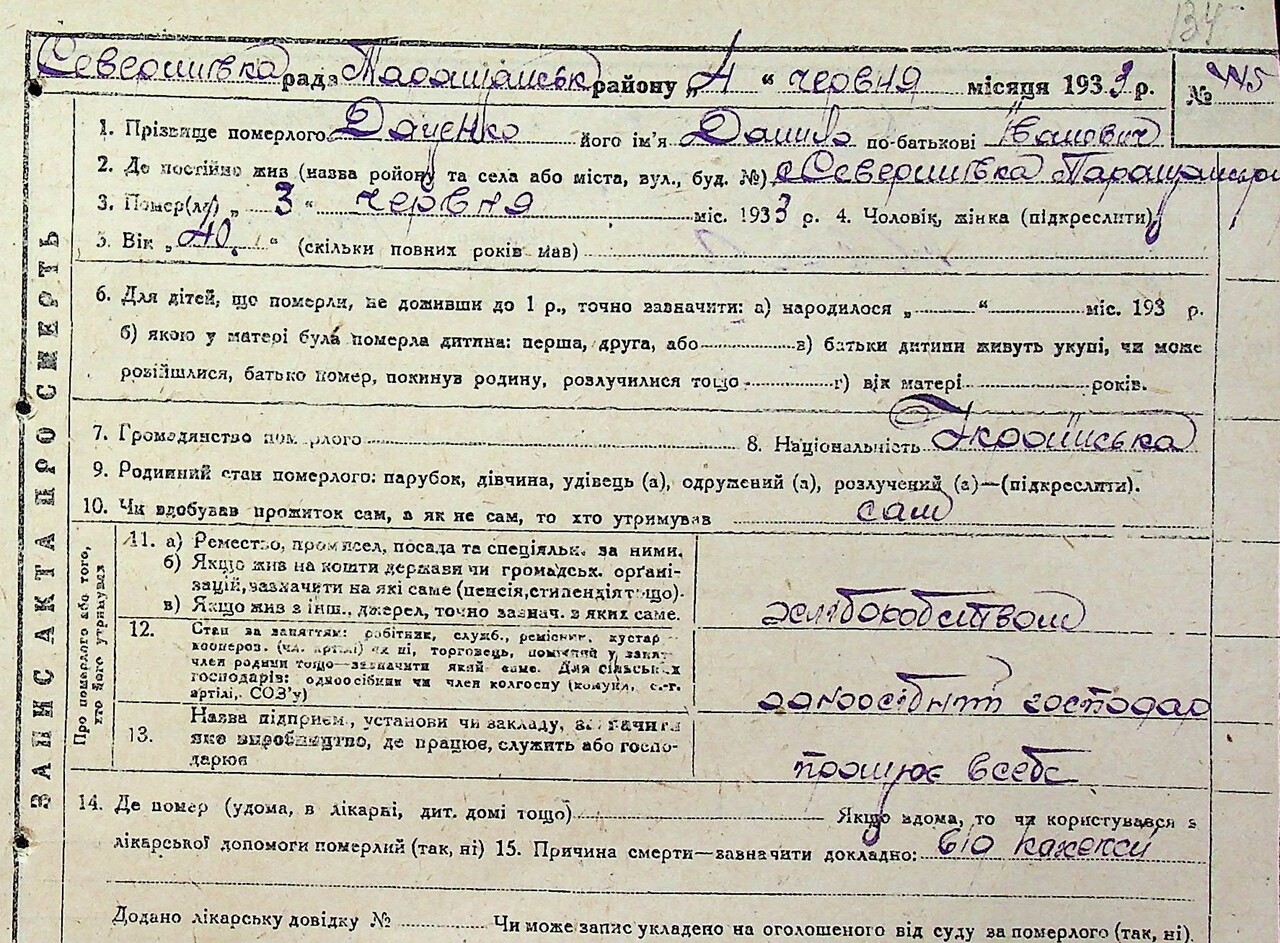 134
Северинівка рада Таращанськ району „4“ червня місяця 1933 р. №
1. Прізвище померлого Даценко його ім'я Данило по-батькові Іванович
2. Де постійно жив (назва ройону та села або міста, вул., буд. №) с Северинівка
3. Помер(ла) „3“ червня міс. 1933 р. 4. Чоловік, жінка (підкреслити)
5. Вік „40“ (скільки повних років мав)
6. Для дітей, що померли, не доживши до 1 р., точно зазначити: а) народилося „ “ міс. 193 р.
б) якою у матері була померла дитина: перша, друга, або в) батьки дитини живуть укупі, чи може
розійшлися, батько помер, покинув родину, розлучилися тощо г) вік матері років.
7. Громадянство пом рлого 8. Національність Українська
9. Родинний стан померлого: парубок, дівчина, удівець (а), одружений (а), розлучений (а)—(підкреслити).
10. Чи здобував прожиток сам, а як не сам, то хто утримував сам
ЗАПИС АКТА ПРО СМЕРТЬ
Про померлого або того, хто його утримував
11. а) Ремество, промисел, посада та спеціяльн. за ними.
б) Якщо жив на кошти держави чи громадськ. орґані-
зацій, зазначити на які саме (пенсія, стипендія тощо).
в) Якщо жив з інш. джерел, точно зазнач. з яких саме.
хліборобством
12. Стан за заняттям: робітник, служб., ремісник, кустар
кооперов. (чл. артілі) чи ні, торговець, помічний у занят.
член родини тощо—зазначити який саме. Для сільських
господарів: одноосібник чи член колгоспу (комуни, с.-г.
артілі, СОЗ'у)
господар
13. Назва підприєм., установи чи закладу, зазначити
яке виробництво, де працює, служить або госпо-
дарює
працює всебе
14. Де помер (удома, в лікарні, дит. домі тощо) Якщо вдома, то чи користувався з
лікарської допомоги померлий (так, ні) 15. Причина смерти—зазначити докладно:
Додано лікарську довідку № Чи може запис укладено на оголошеного від суду за померлого (так, ні).